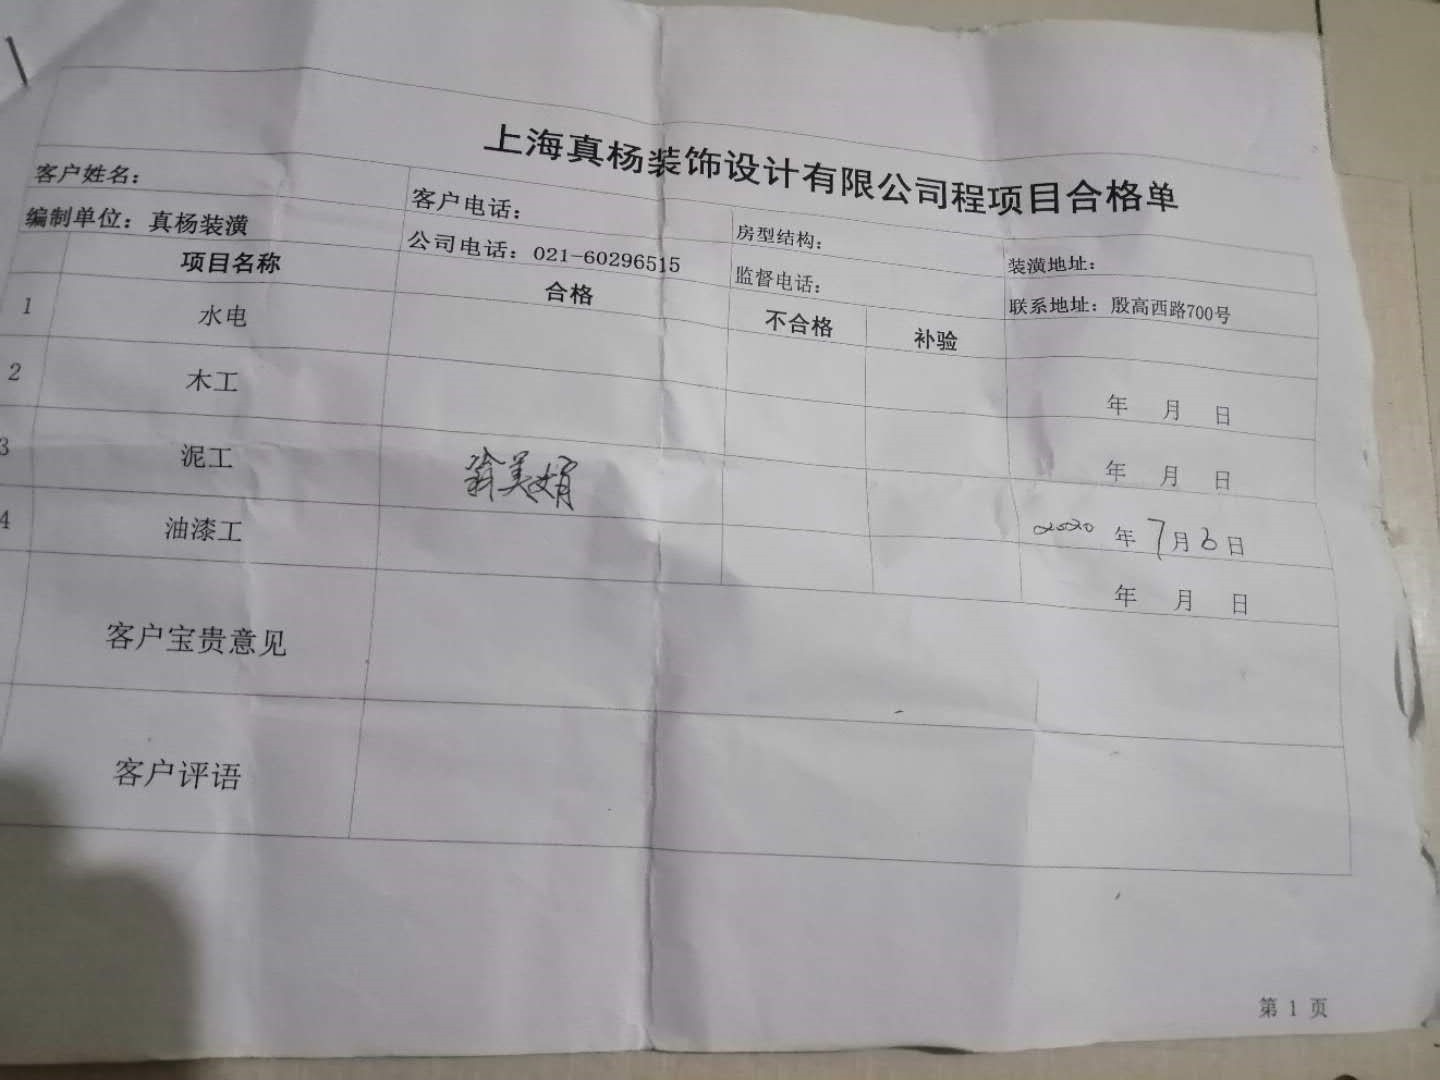 上海真杨装饰设计有限公司程项目合格单
客户姓名： 客户电话： 房型结构： 装潢地址：
编制单位：真杨装潢 公司电话：021-60296515 监督电话： 联系地址：殷高西路700号
项目名称 合格 不合格 补验
1 水电 年 月 日
2 木工 年 月 日
3 泥工 翁美娟 2020 年 7 月 6 日
4 油漆工 年 月 日
客户宝贵意见
客户评语
第 1 页